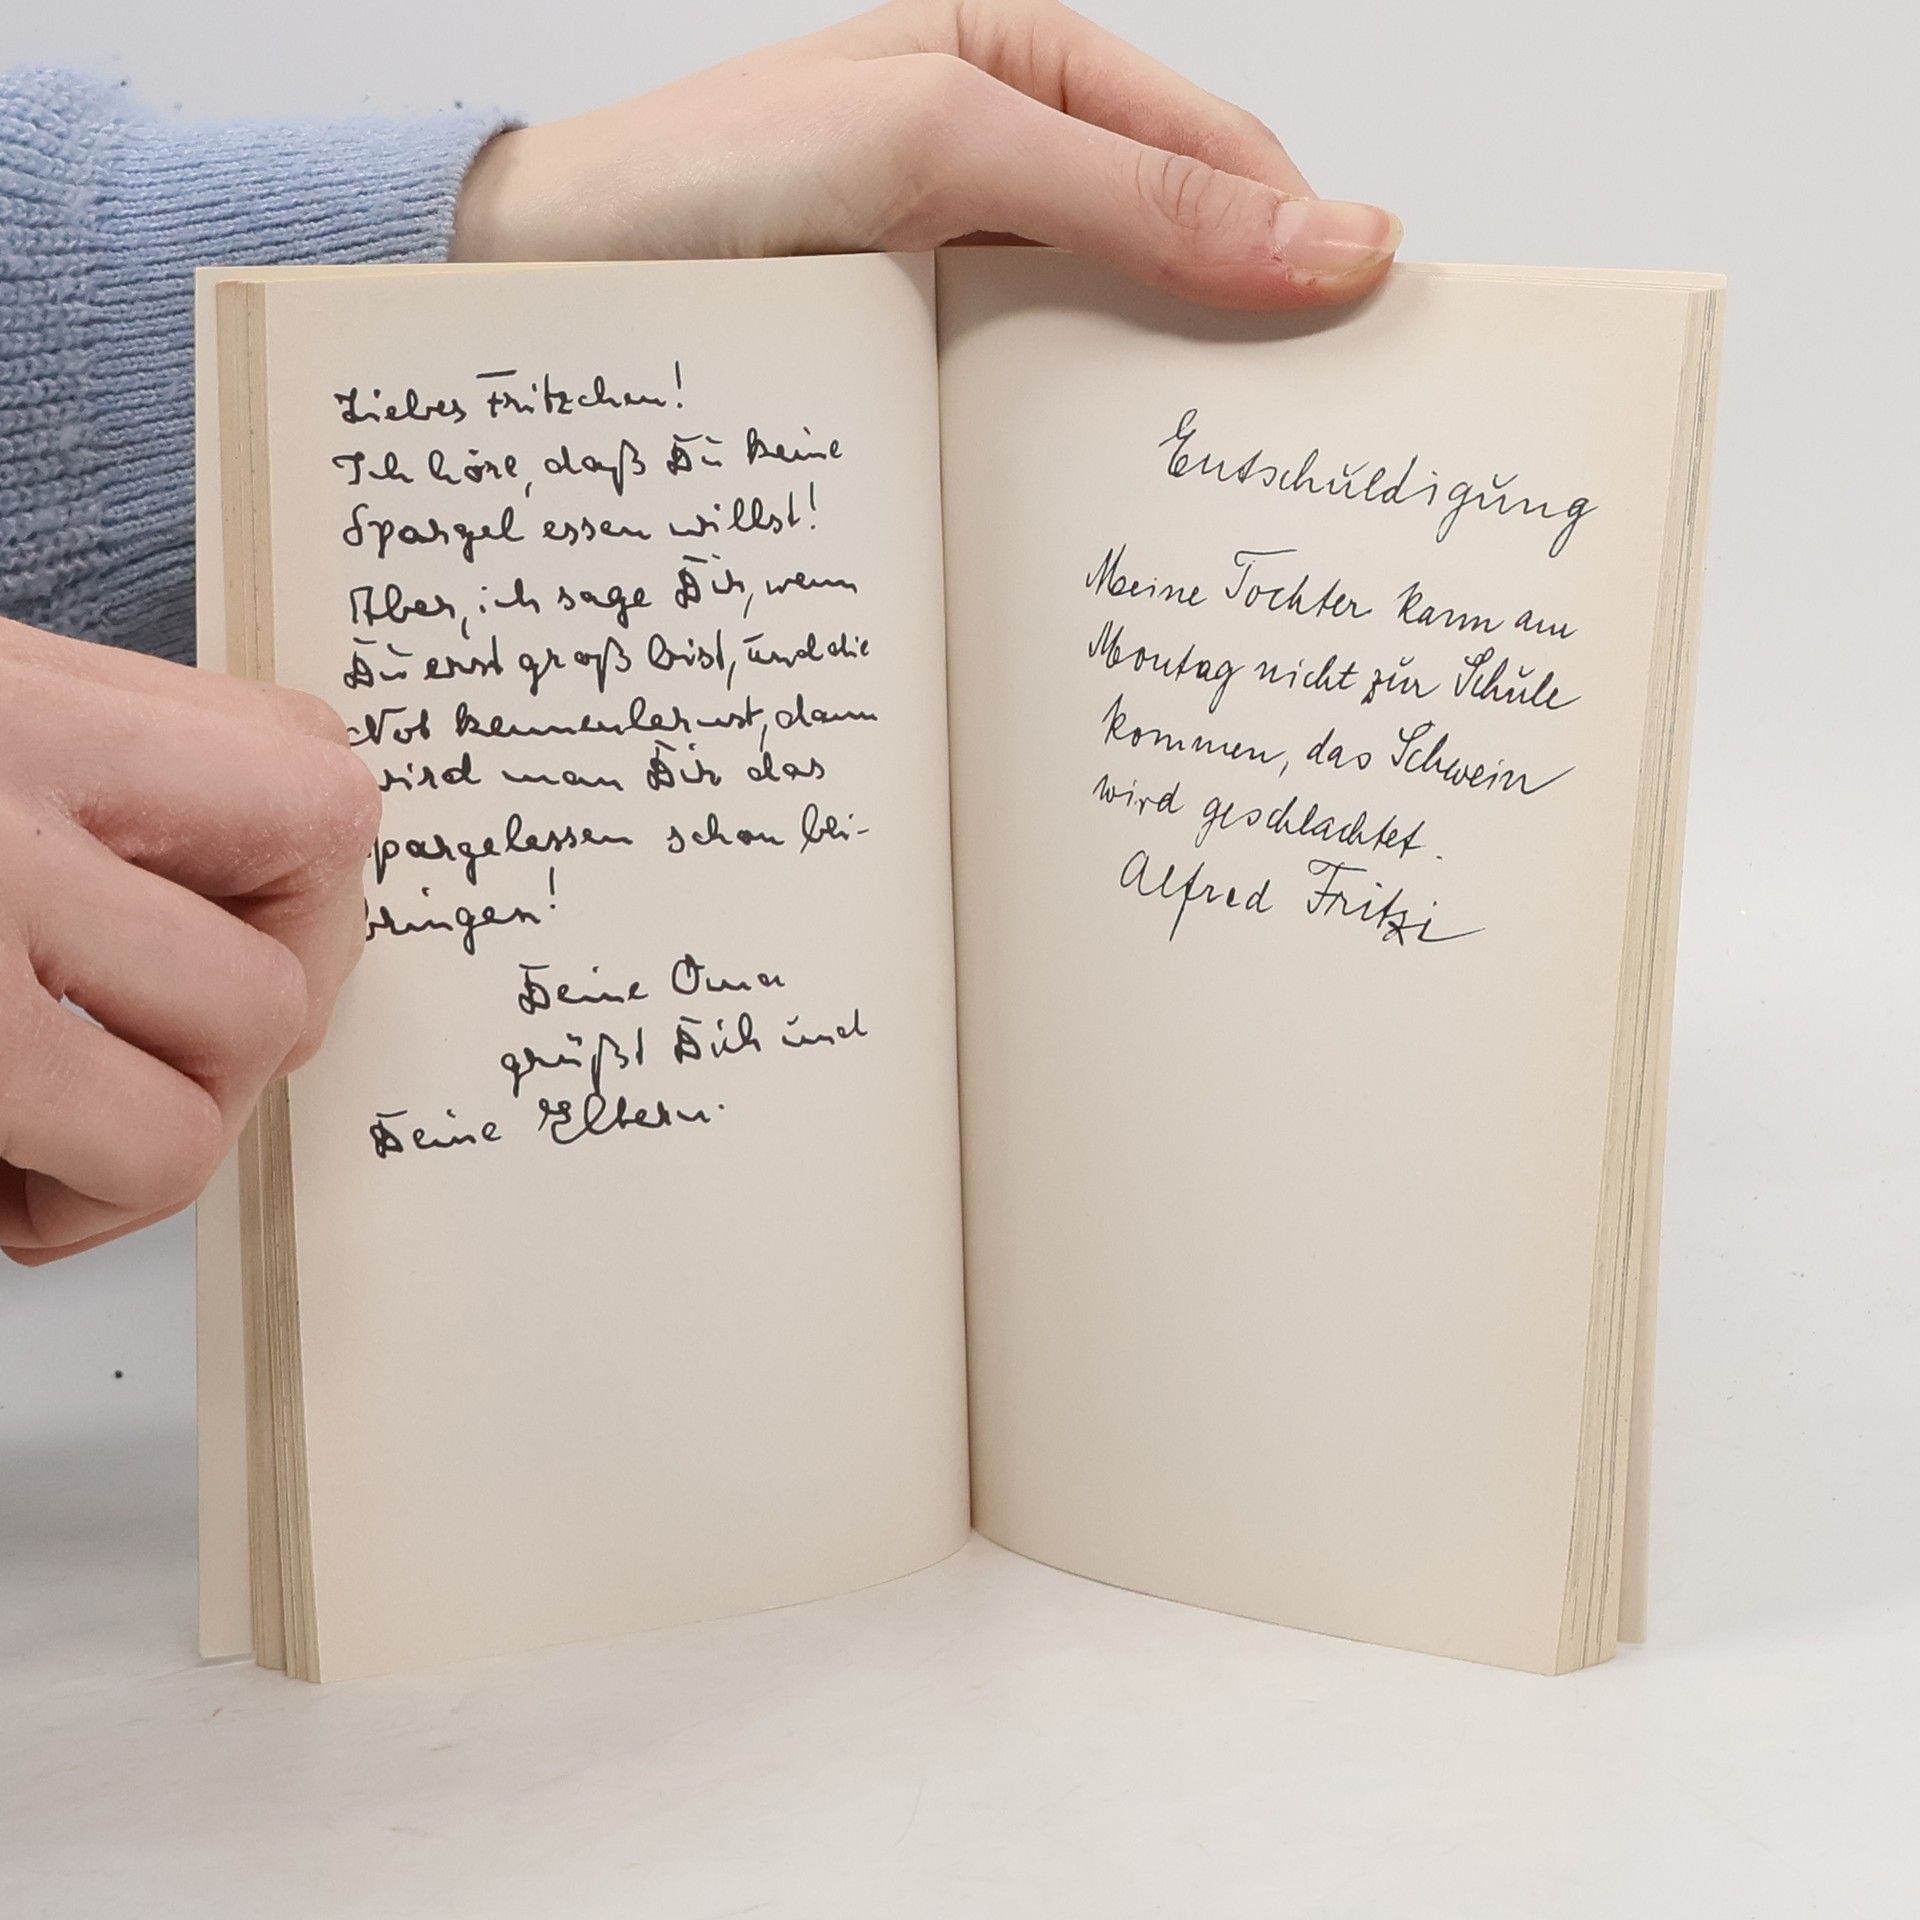 Liebes Fritzchen!
Ich höre, daß Du keine
Spargel essen willst!
Aber, ich sage Dir, wenn
Du erst groß bist, und die
Not kennenlernst, dann
wird man Dir das
Spargelessen schon bei-
bringen!
Deine Oma
grüßt Dich und
Deine Eltern.
Entschuldigung
Meine Tochter kann am
Montag nicht zur Schule
kommen, das Schwein
wird geschlachtet.
Alfred Fritzi